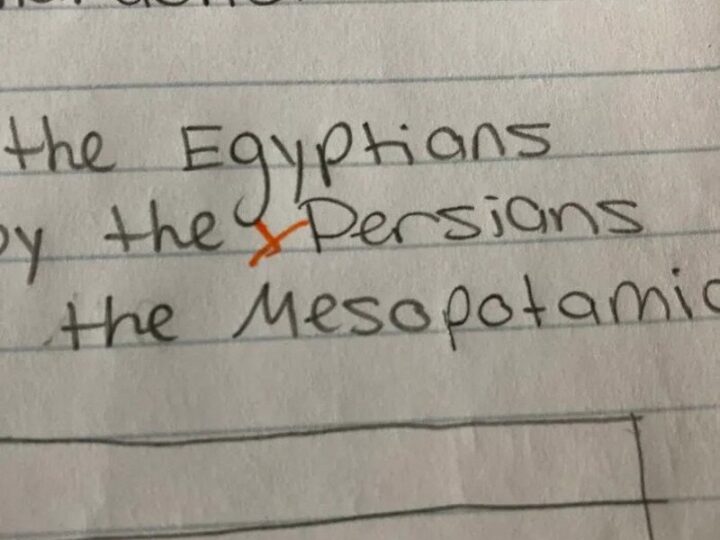 the Egyptians
by the Persians
the Mesopotamia